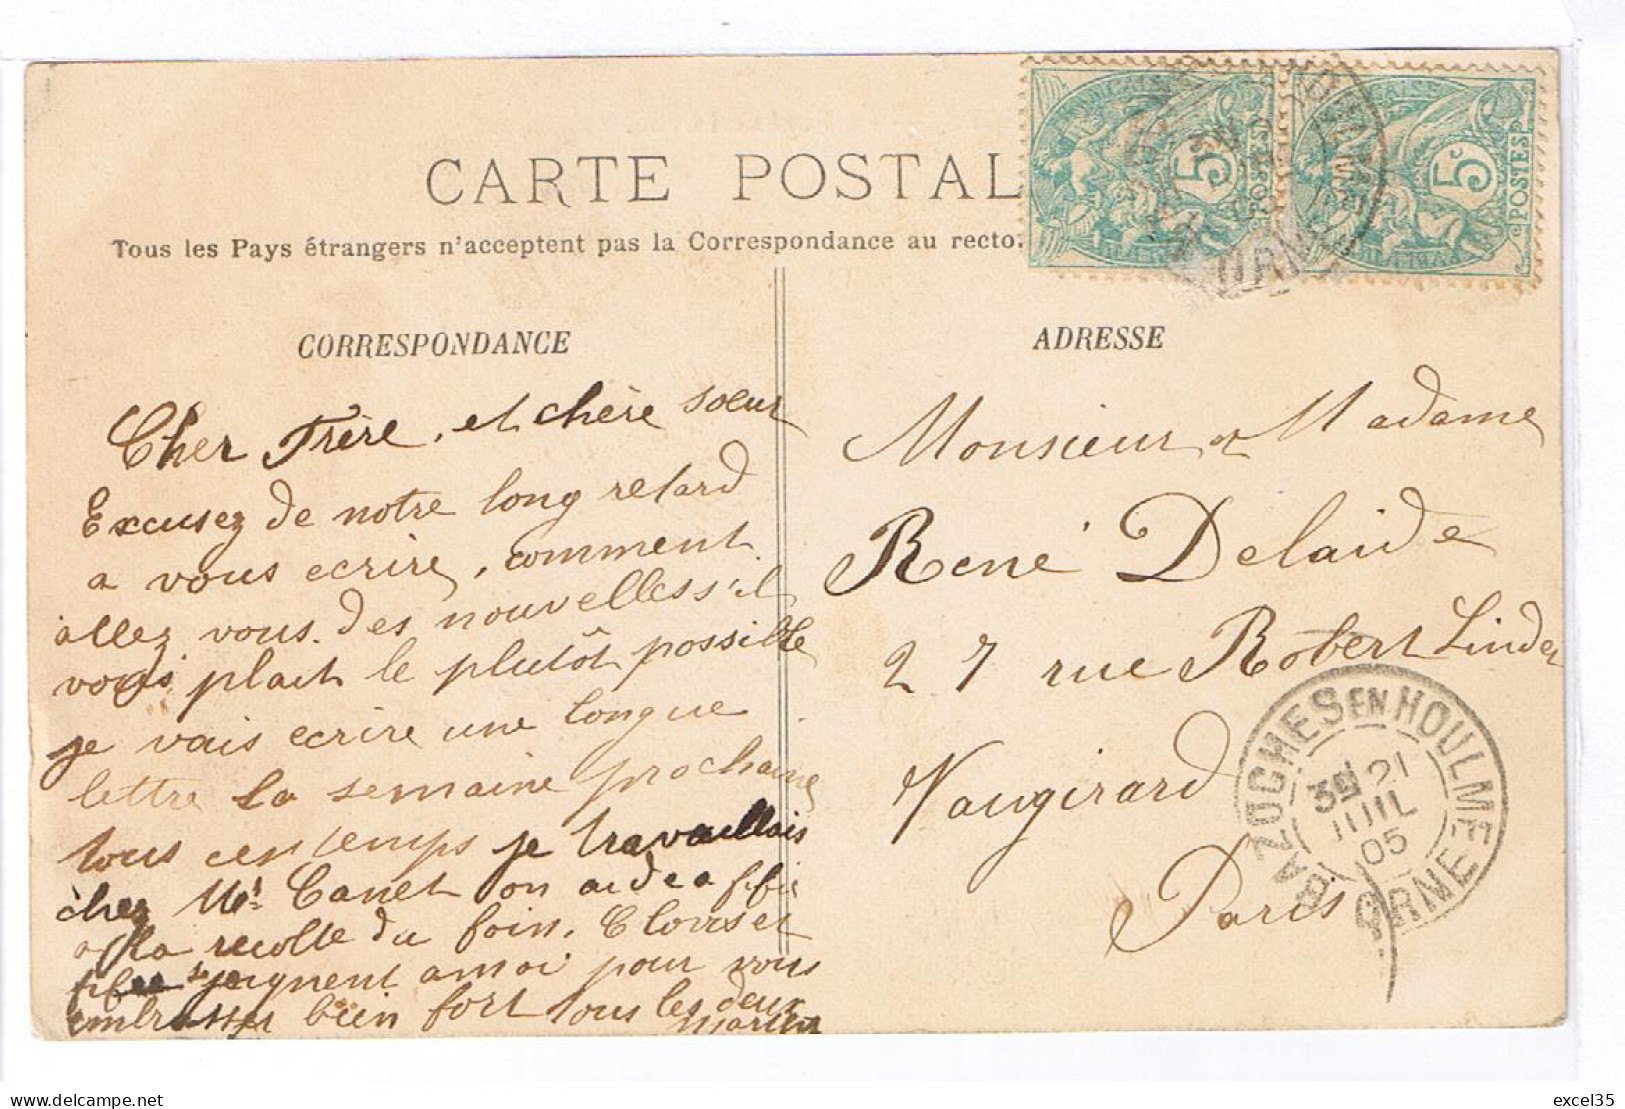 CARTE POSTAL
Tous les Pays étrangers n'acceptent pas la Correspondance au recto.
CORRESPONDANCE
Cher Frère, et chère sœur
Excusez de notre long retard
a vous ecrire, comment
allez vous. des nouvelles s'il
vous plait le plutôt possible
je vais ecrire une longue
lettre la semaine prochaine
tous ces temps je travaillais
chez Mr Canet on aidea fifi
a la recolte du foin. Clouiset
fifi se joignent a moi pour vous
embrasser bien fort tous les deux
Martin
ADRESSE
Monsieur et Madame
René Delaide
27 rue Robert Linder
Vaugirard
Paris
5c
POSTES
5
POSTES
ORNE
BAZOCHES EN HOULME
3E 21
JUIL
05
ORNE
excel35